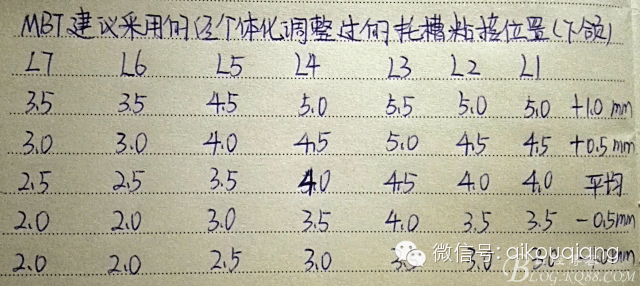 MBT建议采用的经个体化调整过的托槽粘接位置(下颌)
L7 L6 L5 L4 L3 L2 L1
3.5 3.5 4.5 5.0 5.5 5.0 5.0 +1.0 mm
3.0 3.0 4.0 4.5 5.0 4.5 4.5 +0.5 mm
2.5 2.5 3.5 4.0 4.5 4.0 4.0 平均
2.0 2.0 3.0 3.5 4.0 3.5 3.5 -0.5mm
微信号: qikouqiang
2.0 2.0 2.5 3.0 3.0 mm
BLOG.KQ88.COM